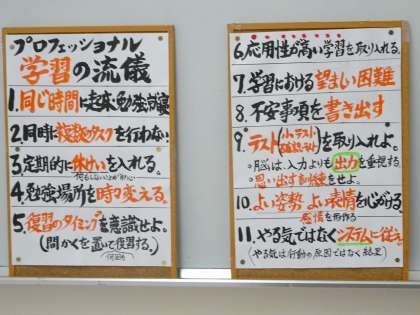 プロフェッショナル
学習の流儀
1.同じ時間に起床・勉強・就寝
2.同時に複数タスクを行わない
3.定期的に休けいを入れる。
4.勉強場所を時々変える。
5.復習のタイミングを意識せよ。
(間かくを置いて復習する。)
6.応用性が高い学習を取り入れる。
7.学習における望ましい困難
8.不安事項を書き出す
9.テスト(小テスト 確認テスト)を取り入れよ。
・脳は、入力よりも出力を重視する。
・思い出す訓練をせよ。
10.よい姿勢 よい表情を心がける。
感情を形作る
11.やる気ではなくシステムに従え
(やる気は行動の原因ではなく結果)